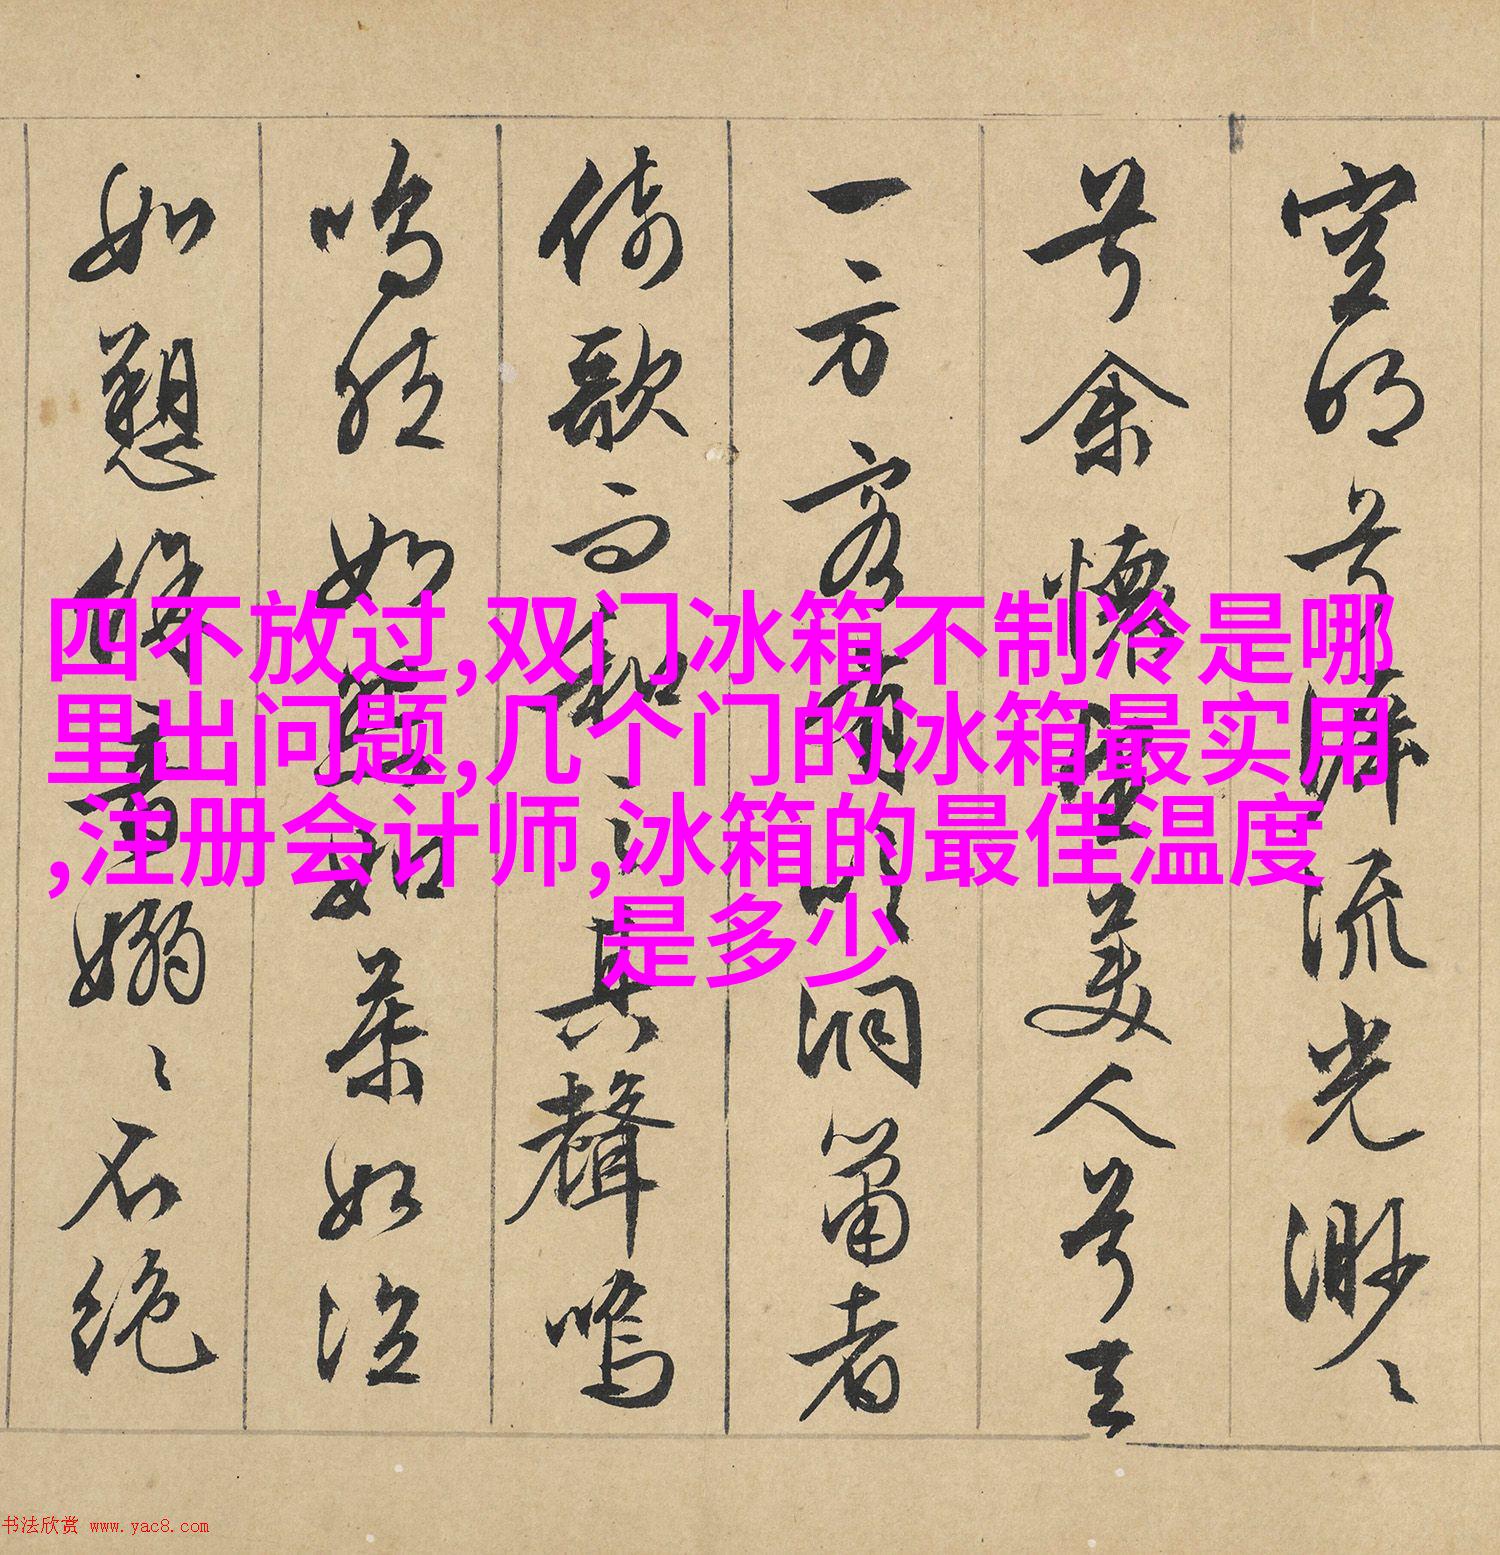 空明兮溯流光渺〻
兮余懷望美人兮天
一方客有吹洞簫者
倚歌而和之其聲嗚
嗚然如怨如慕如泣
如愬餘音嫋〻不絶
四不放过,双门冰箱不制冷是哪
里出问题,几个门的冰箱最实用
,注册会计师,冰箱的最佳温度
是多少
书法欣赏 www.yac8.com